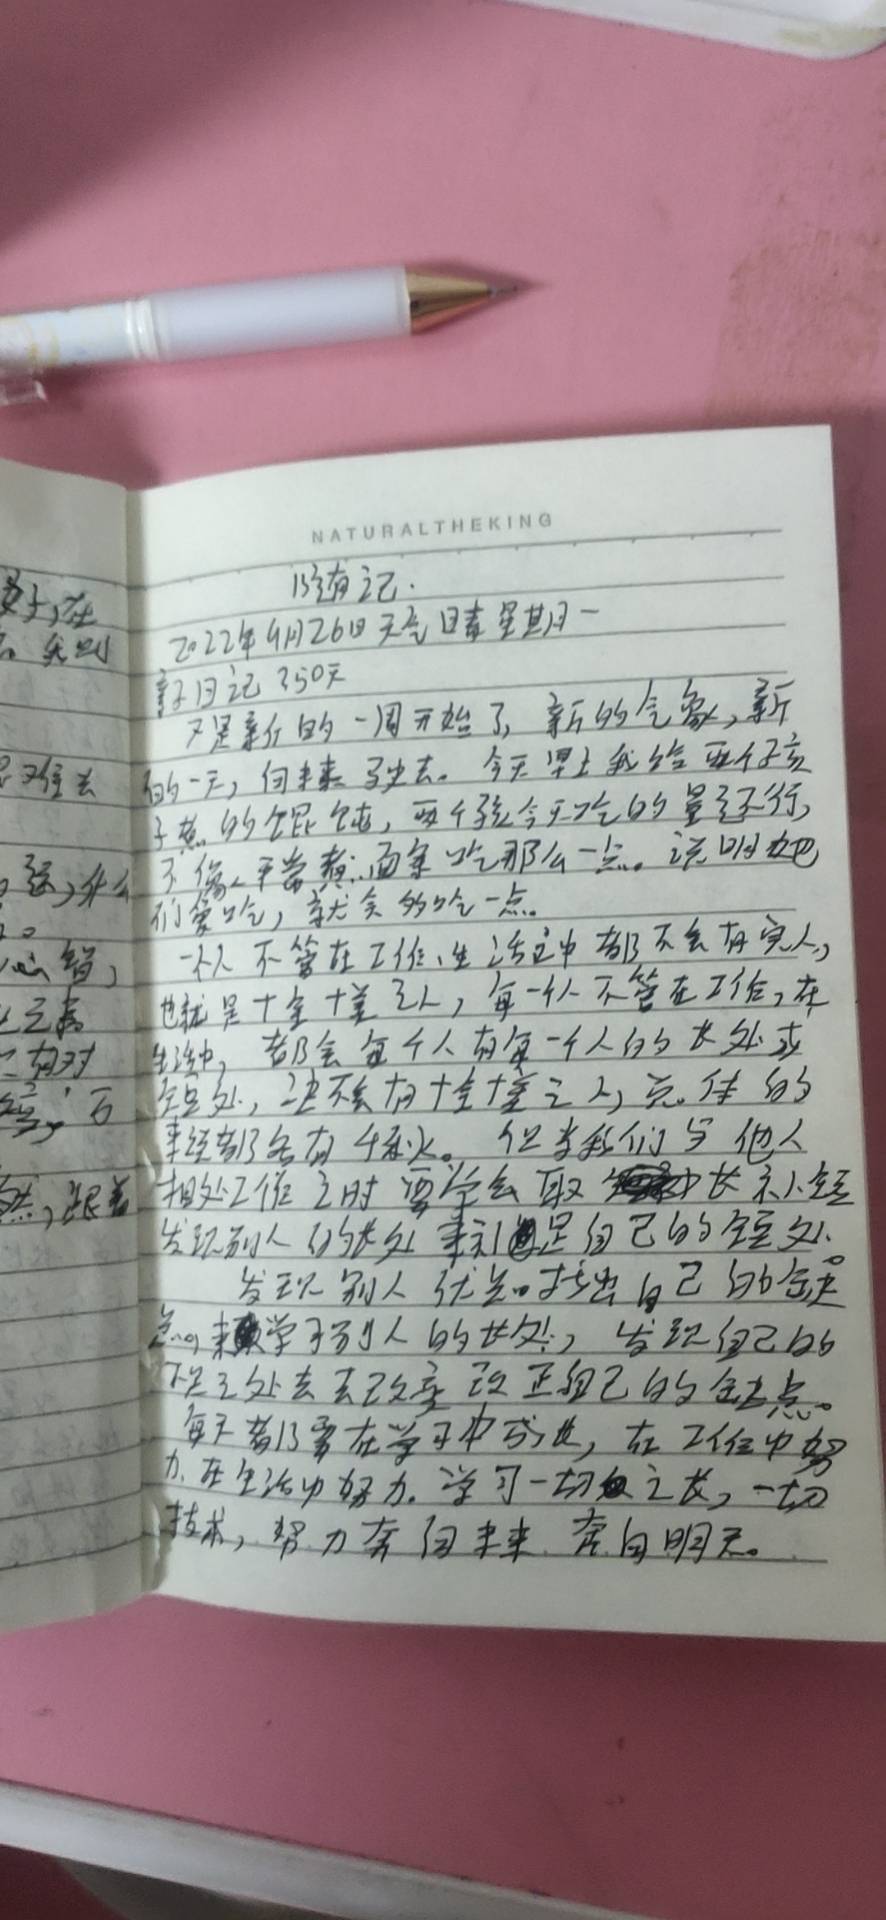 NATURALTHEKING
随记.
2022年4月26日天气晴星期一
亲子日记350天
又是新的一周开始了,新的气象,新
的一天,向未来出去。今天早上我给两个孩
子煮的馄饨,两个孩今天吃的量还行,
不像平常煮面条吃那么一点。说明她
们爱吃,就会多吃一点。
一个人不管在工作、生活中都不会有完人,
也就是十全十美之人,每一个人不管在工作,在
生活中,都会每个人有每一个人的长处或
短处,没不会有十全十美之人,总体的
来经都各有千秋。但当我们与他人
相处工作之时要学会取长补短
发现别人的长处来补足自己的短处.
发现别人优点。找出自己的缺
点。来学习别人的长处,发现自己的
不足之处去去改变改正自己的缺点。
每天都要在学习中成长,在工作中努
力.在生活中努力.学习一切之长,一切
技术,努力奔向未来.奔向明天。
好,在
很难去
强,什么
心智,
有对
跟着